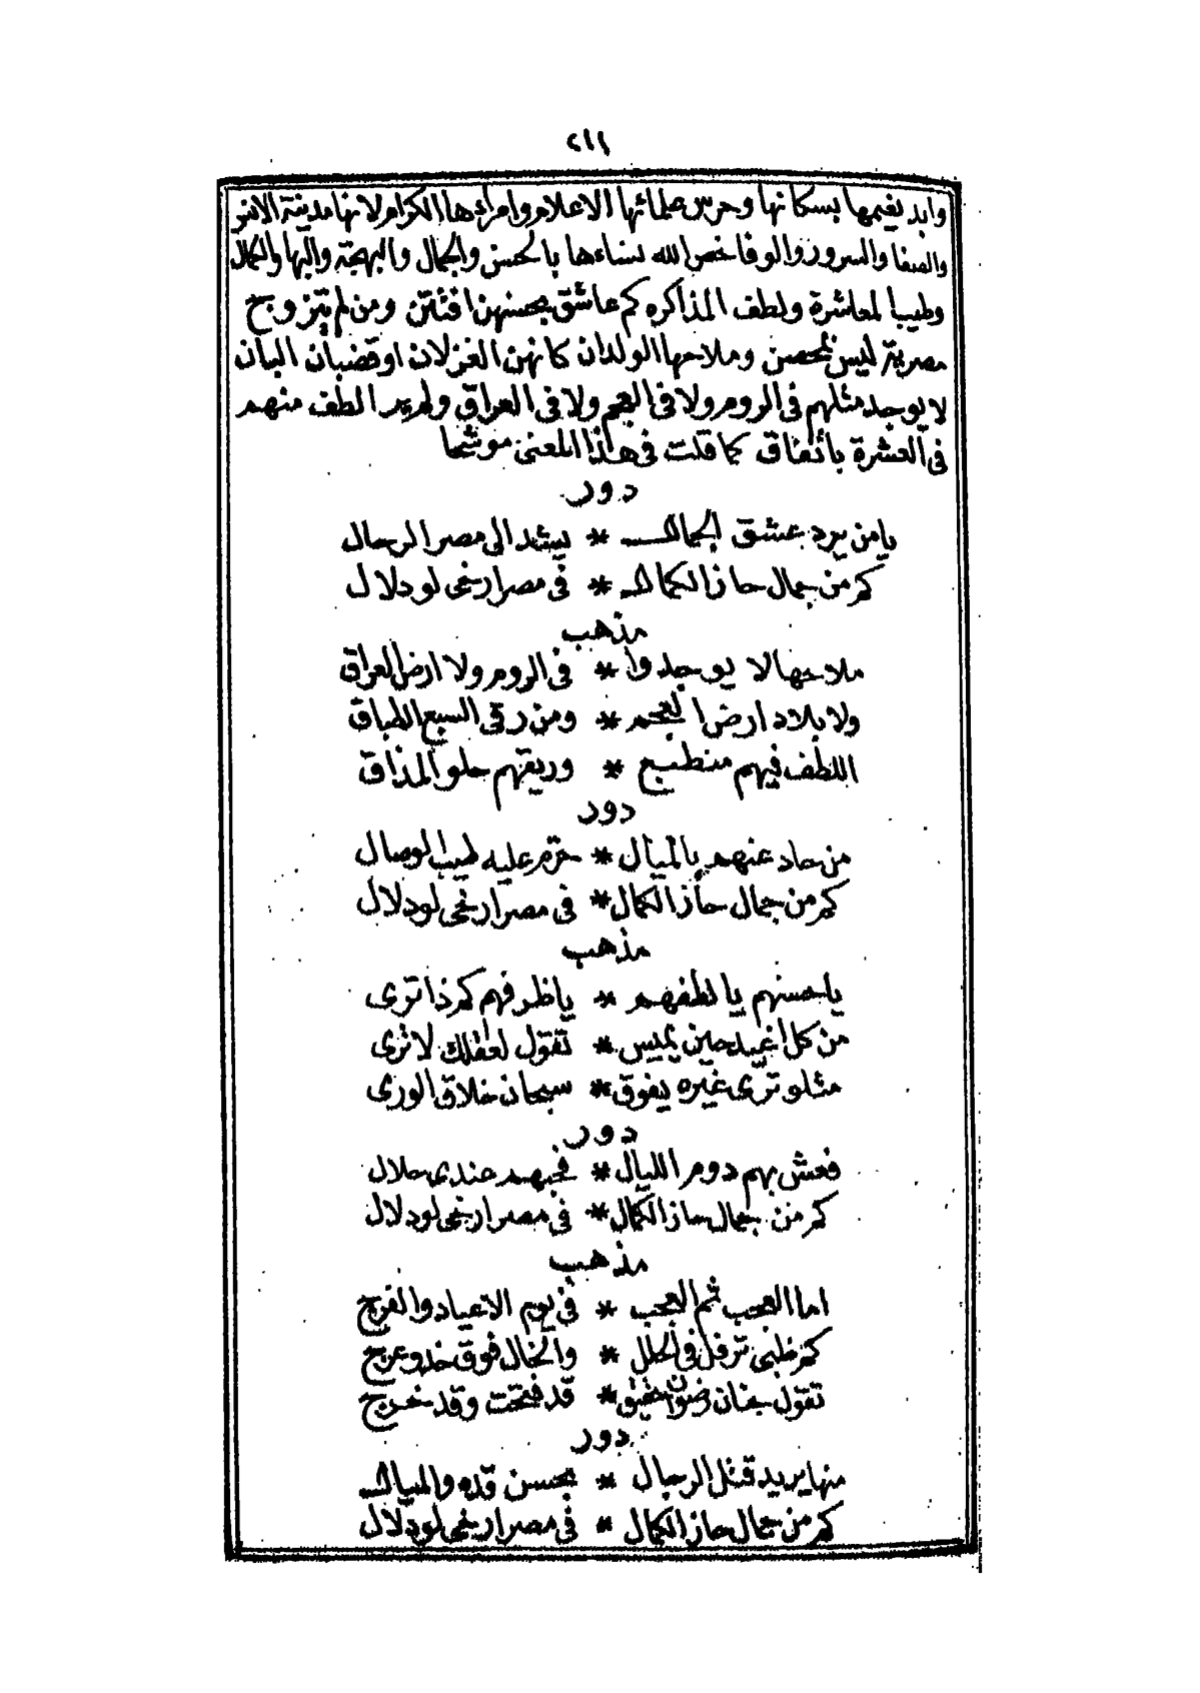 ٢١١
وابد نعيمها بسكانها وحرس علمائها الاعلام وامراءها الكرام لانها مدينة الانس
والصفا والسرور والوفا خص الله نساءها بالحسن والجمال والبهجة والبها والكمال
وطيب المعاشرة ولطف المذاكره كم عاشق بحسنهن افتتن ومن لم يتزوج
مصرية ليس بمحصن وملاحها الولدان كانهن الغزلان او قضبان البان
لا يوجد مثلهم في الروم ولا في العجم ولا في العراق ولم ير الطف منهم
في العشرة باتفاق كما قلت في هذا المعنى موشحا
دور
يا من يرد عشق الجمال * يشد الى مصر الرحال
كم من جمال حاز الكمال * في مصر ارخى لو دلال
مذهب
ملاحها لا يوجدوا * في الروم ولا ارض العراق
ولا بلاد ارض العجم * ومن رقى السبع الطباق
اللطف فيهم منطبع * وريقهم حلو المذاق
دور
من حاد عنهم بالميال * حرم عليه طيب الوصال
كم من جمال حاز الكمال * في مصر ارخى لو دلال
مذهب
يا حسنهم يا لطفهم * يا ظرفهم كم ذا ترى
من كل اغيد حين يميس * تقول لعقلك لا ترى
مثلو ترى غيره يفوق * سبحان خلاق الورى
دور
فعش بهم دوم الليال * فحبهم عندي حلال
كم من جمال حاز الكمال * في مصر ارخى لو دلال
مذهب
اما العجب ثم العجب * في يوم الاعياد والفرج
كم ظبي ترفل في الحلل * والخال فوق خدو عرج
تقول جنان رضوان حقيق * قد فتحت وقد خرج
دور
منها يريد قتل الرجال * بحسن قده والميال
كم من جمال حاز الكمال * في مصر ارخى لو دلال